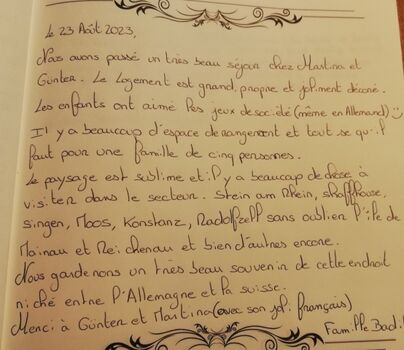 Le 23 Août 2023,
Nous avons passé un très beau séjour chez Martina et
Günter. Le logement est grand, propre et joliment décoré.
Les enfants ont aimé les jeux de société (même en Allemand) ☺
Il y a beaucoup d'espace de rangement et tout se qu'il
faut pour une famille de cinq personnes.
Le paysage est sublime et il y a beaucoup de chose à
visiter dans le secteur. Stein am Rhein, Shaffhouse,
Singen, Moos, Konstanz, Radolfzell sans oublier l'île de
Mainau et Reichenau et bien d'autres encore.
Nous garderons un très beau souvenir de cette endroit
niché entre l'Allemagne et la suisse.
Merci à Günter et Martina (avec son joli français)
Famille